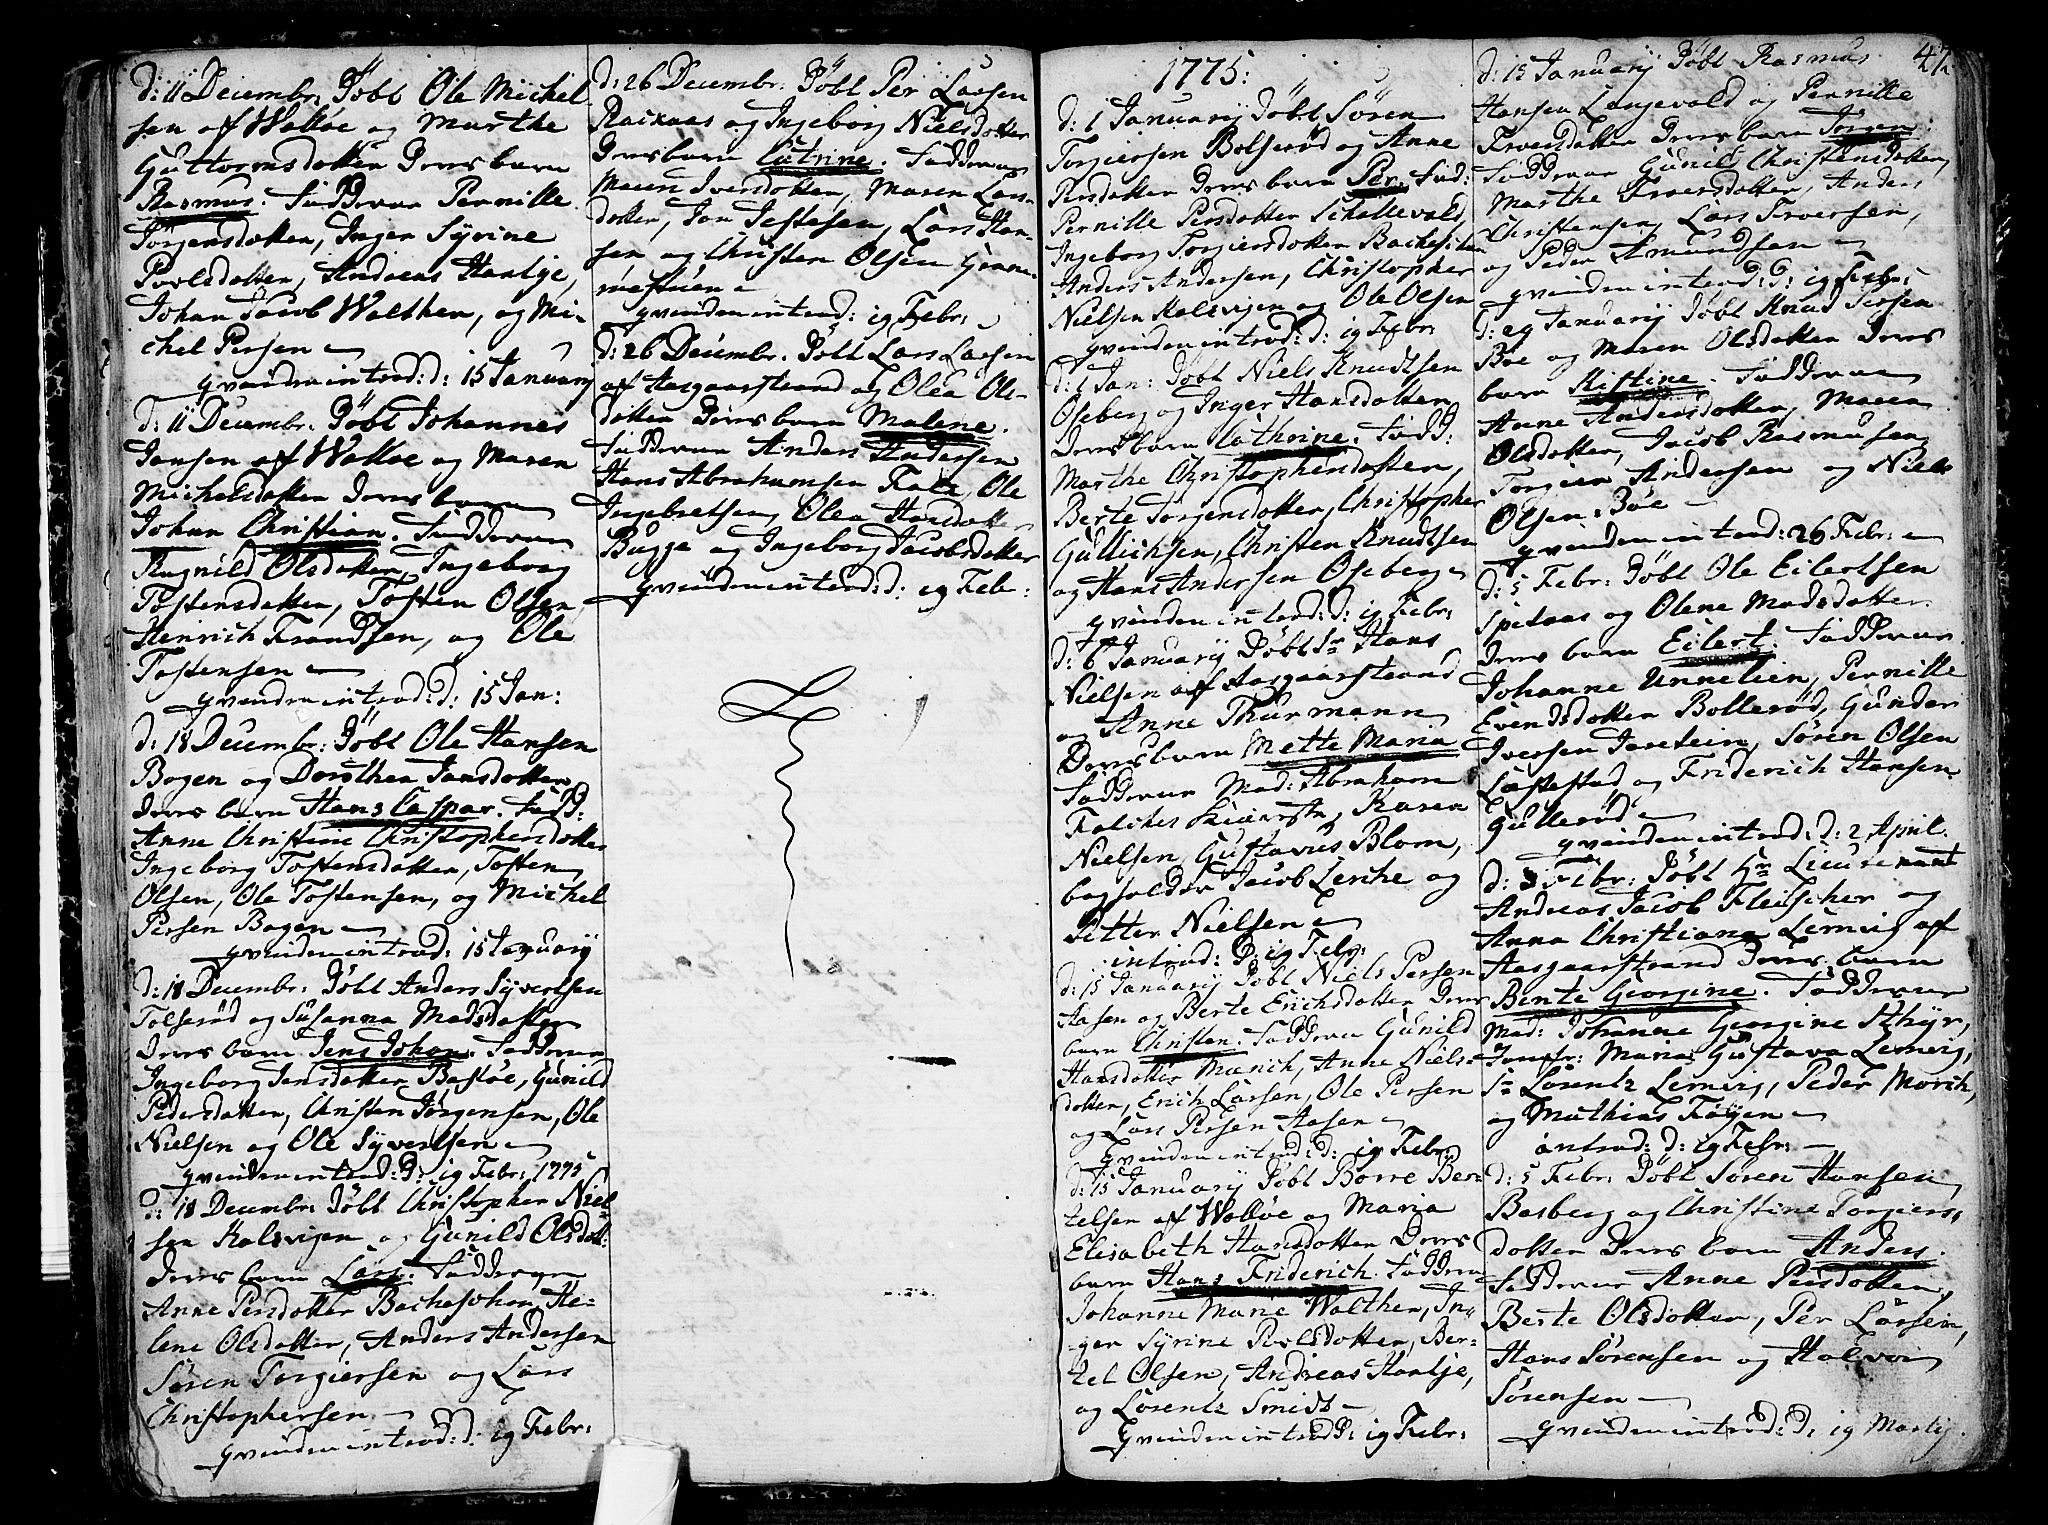 d: 11 Decembr: Döbt Ole Michel-
sen aff Walløe og Marthe
Guttormsdotter Deres barn
Rasmus. Fadderne Pernille
Jörgensdotter, Inger Syrine
Povlsdotter, Andreas Hantje,
Johan Jacob Walther, og Mi-
chel Persen
qvinden introd: d: 15 January
d: 11 Decembr: Döbt Johannes
Jansen aff Walløe og Maren
Michelsdotter Deres barn
Johan Christian. Fadderne
Ragnild Olsdotter, Ingeborg
Tostensdotter, Tosten Olsen
Heinrich Frandsen, og Ole
Tostensen
qvinden introd: d: 15 Jan:
d: 18 Decembr: Döbt Ole Hansen
Bogen og Dorothea Jansdotter
Deres barn Hans Caspar. Fadd:
Anne Christine Christophersdotter
Ingeborg Tostensdotter, Tosten
Olsen, Ole Tostensen, og Michel
Persen Bogen
qvinden introd: 15 January
d: 18 Decembr: Döbt Anders Syvertsen
Tolserød og Susanna Madsdotter
Deres barn Jens Johan. Fadderne
Ingeborg Jansdotter Bastöe, Gunild
Pedersdotter, Christen Jørgensen, Ole
Nielsen og Ole Syvertsen
qvinden introd: d: 19 Febr: 1775
d: 18 Decembr: Döbt Christopher Niel-
sen Kalsvigen og Gunild Olsdott:
Deres barn Lars. Fadderne
Anne Persdotter Bacheschou, He-
lene Olsdotter, Anders Andersen
Søren Torgiersen og Lars
Christophersen
qvinden introd: d: 19 Febr:
d: 26 Decembr: Döbt Per Larsen
Rachaas og Ingeborg Nielsdotter
Deres barn Catrine. Fadderne
Maren Iversdotter, Maren Lars-
dotter, Jan Jestesen, Lars Han-
sen og Christen Olsen
qvinden introd: 19 Febr:
d: 26 Decembr: Döbt Lars Larsen
aff Aasgaarstrand og Olea Ols-
dotter Deres barn Malene.
Fadderne Anders Andersen
Hans Abrahamsen Falc, Ole
Ingebretsen, Olea Hansdotter
Bugge og Ingeborg Jacobsdotter
qvinden introd: d: 19 Febr:
1775:
d: 1 January Döbt Søren
Torgiersen Bolserød og Anne
Persdotter Deres barn Per. Fad:
Pernille Persdotter Schallevold,
Ingeborg Torgiersdotter
Anders Andersen, Christopher
Nielsen Kalsvigen og Ole Olsen
qvinden introd: d: 19 Febr:
d: 1 Jan: Döbt Niels Knudtsen
Oseberg og Inger Hansdotter
Deres barn Cathrine. Fadd:
Marthe Christophersdotter,
Berte Jörgensdotter, Christopher
Gullichsen, Christen Knudtsen
og Hans Andersen Oseberg
qvinden introd: d: 19 Febr:
d: 6 January Döbt Sr Hans
Nielsen aff Aasgaarstrand
og Anne Thurmann
Deres barn Mette Maria
Fadderne Mad: Abraham
Falches Karen
Nielsen, Gustavus Blom,
bogholder Jacob Lerche og
Petter Nielsen
introd: d: 19 Febr:
d: 15 January Döbt Niels Persen
Aasen og Berte Erichsdotter Deres
barn Christen. Fadderne Gunild
Hansdotter Munch, Anne Niels-
dotter, Erich Larsen, Ole Persen
og Lars Persen Aasen
qvinden introd: d: 19 Febr:
d: 15 January Döbt Borre Ber-
telsen aff Walløe og Maria
Elisabeth Hansdotter Deres
barn Hans Friderich. Fadderne
Johanne Marie Walther, In-
ger Syrine Povlsdotter, Ber-
tel Olsen, Andreas Hantje,
og Lorentz Smidt
qvinden introd: d: 19 Febr:
47
d: 15 January Döbt Rasmus
Hansen Langevold og Pernille
Deres barn Jørgen.
Fadderne Gunild Christensdotter,
Marthe Anders
Christensen, Lars
og Peder Amundsen
qvinden introd: d: 19 Febr:
d: 29 January Döbt Knud Persen
Bøe og Maren Olsdotter Deres
barn Kistine. Fadderne
Anne Andersdotter, Maren
Olsdotter, Jacob Rasmusen,
Torgier Andersen og Niels
Olsen Bøe
qvinden introd: 26 Febr:
d: 5 Febr: Döbt Ole Eilertsen
Spetaas og Olene Madsdotter
Deres barn Eilert. Fadderne
Johanne Unnelien, Pernille
Evendsdotter Bollerød, Gunder
Iversen Jareteien, Søren Olsen
og Friderich Hansen
Gullerød
qvinden introd: d: 2 April.
d: 5 Febr: Döbt Hr Lieutenant
Andreas Jacob Fleischer og
Anna Christiana Lemvig aff
Aasgaarstrand Deres barn
Bente Georgine. Fadderne
Mad: Johanne Georgine Schyr,
Jomfr: Maria Gustava Lemvig,
Sr Lorentz Lemvig, Peder Morch,
og Mathias Føyen
introd: d: 19 Febr:
d: 5 Febr: Döbt Søren Hansen
Basberg og Christine Torgiers-
dotter Deres barn Anders.
Fadderne Anne Persdotter,
Berte Olsdotter, Per Larsen,
Hans Sørensen og Halvor
Sørensen
qvinden introd: d: 19 Martij.